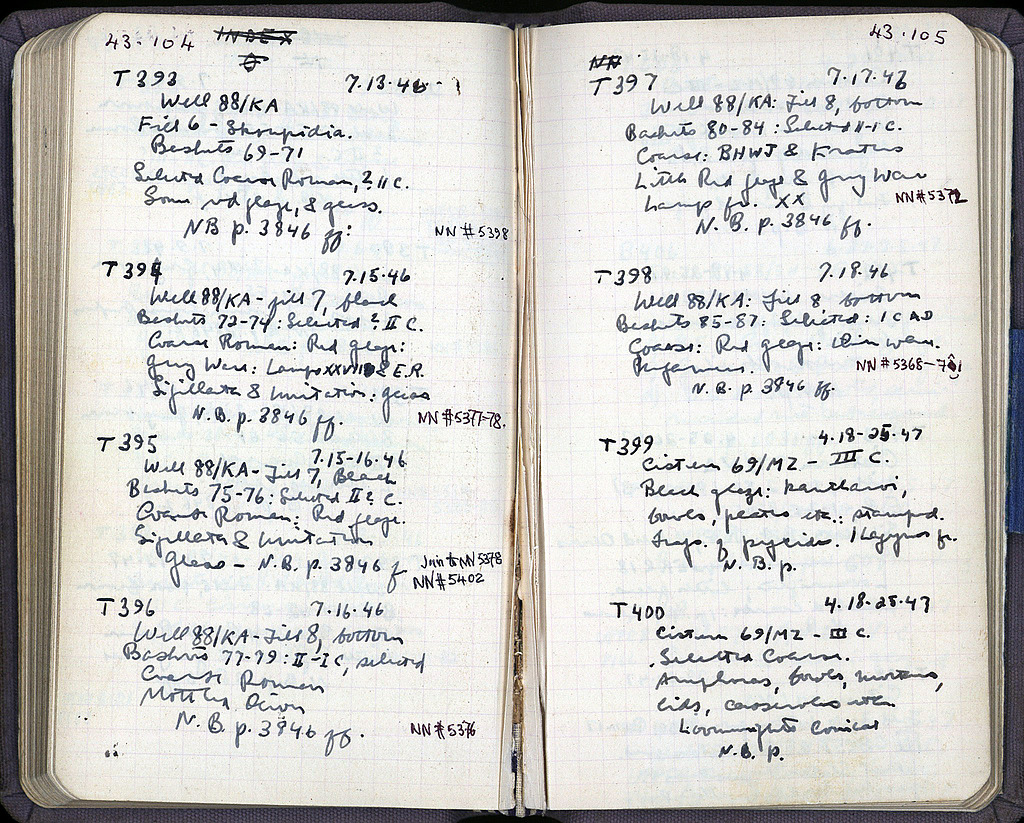 43·104 INDEX
T 393 7.13.46
Well 88/KA
Fill 6 - Skoupidia.
Baskets 69-71
Selected Coarse Roman, ? II C.
Some red glaze, & glass.
NB p. 3846 ff:
NN #5398
T 394 7.15.46
Well 88/KA - fill 7, black
Baskets 72-74: Selected ? II C.
Coarse Roman: Red glaze:
Gray Ware: Lamps XXVII & E.R.
Sigillata & Imitation: glass
N.B. p. 3846 ff.
NN #5377-78.
T 395
7.15-16.46
Well 88/KA - Fill 7, Black
Baskets 75-76: Selected II ? C.
Coarse Roman: Red glaze.
Sigillata & Imitation
Glass - N.B. p. 3846 f
Join to NN 5378
NN #5402
T 396 7.16.46
Well 88/KA - Fill 8, bottom
Baskets 77-79: II-I C, selected
Coarse Roman
N.B. p. 3846 ff.
NN #5376
43·105
NN
T 397 7.17.46
Well 88/KA: Fill 8, bottom
Baskets 80-84: Selected II-I C.
Coarse: BHWJ & Kraters
Little Red glaze & gray Ware
Lamp fr. XX
NN #5372
N.B. p. 3846 ff.
T 398 7.18.46
Well 88/KA: Fill 8 bottom
Baskets 85-87: Selected: I C AD
Coarse: Red glaze: thin ware.
NN #5368-
N.B. p. 3846 ff.
T 399 4.18-25-47
Cistern 69/MZ - III C.
Black glaze: kantharoi,
bowls, plates etc.: stamped.
Frags. of pyxides, 1 Lagynos fr.
N.B. p.
T 400 4.18-25-47
Cistern 69/MZ - III C.
Selected Coarse.
Amphoras, bowls, mortars,
lids, casseroles
Loomweights Conical
N.B. p.